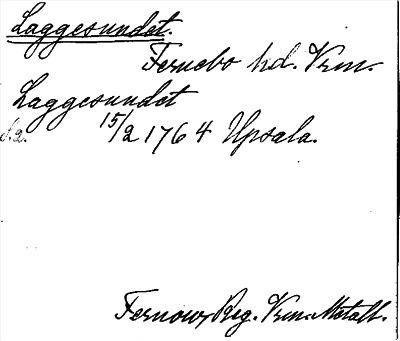 Laggesundet.
Fernebo hd. Vrm.
Laggesundet
s.a. 15/2 1764 Upsala.
Fernow, Reg. Vrm. Metall.